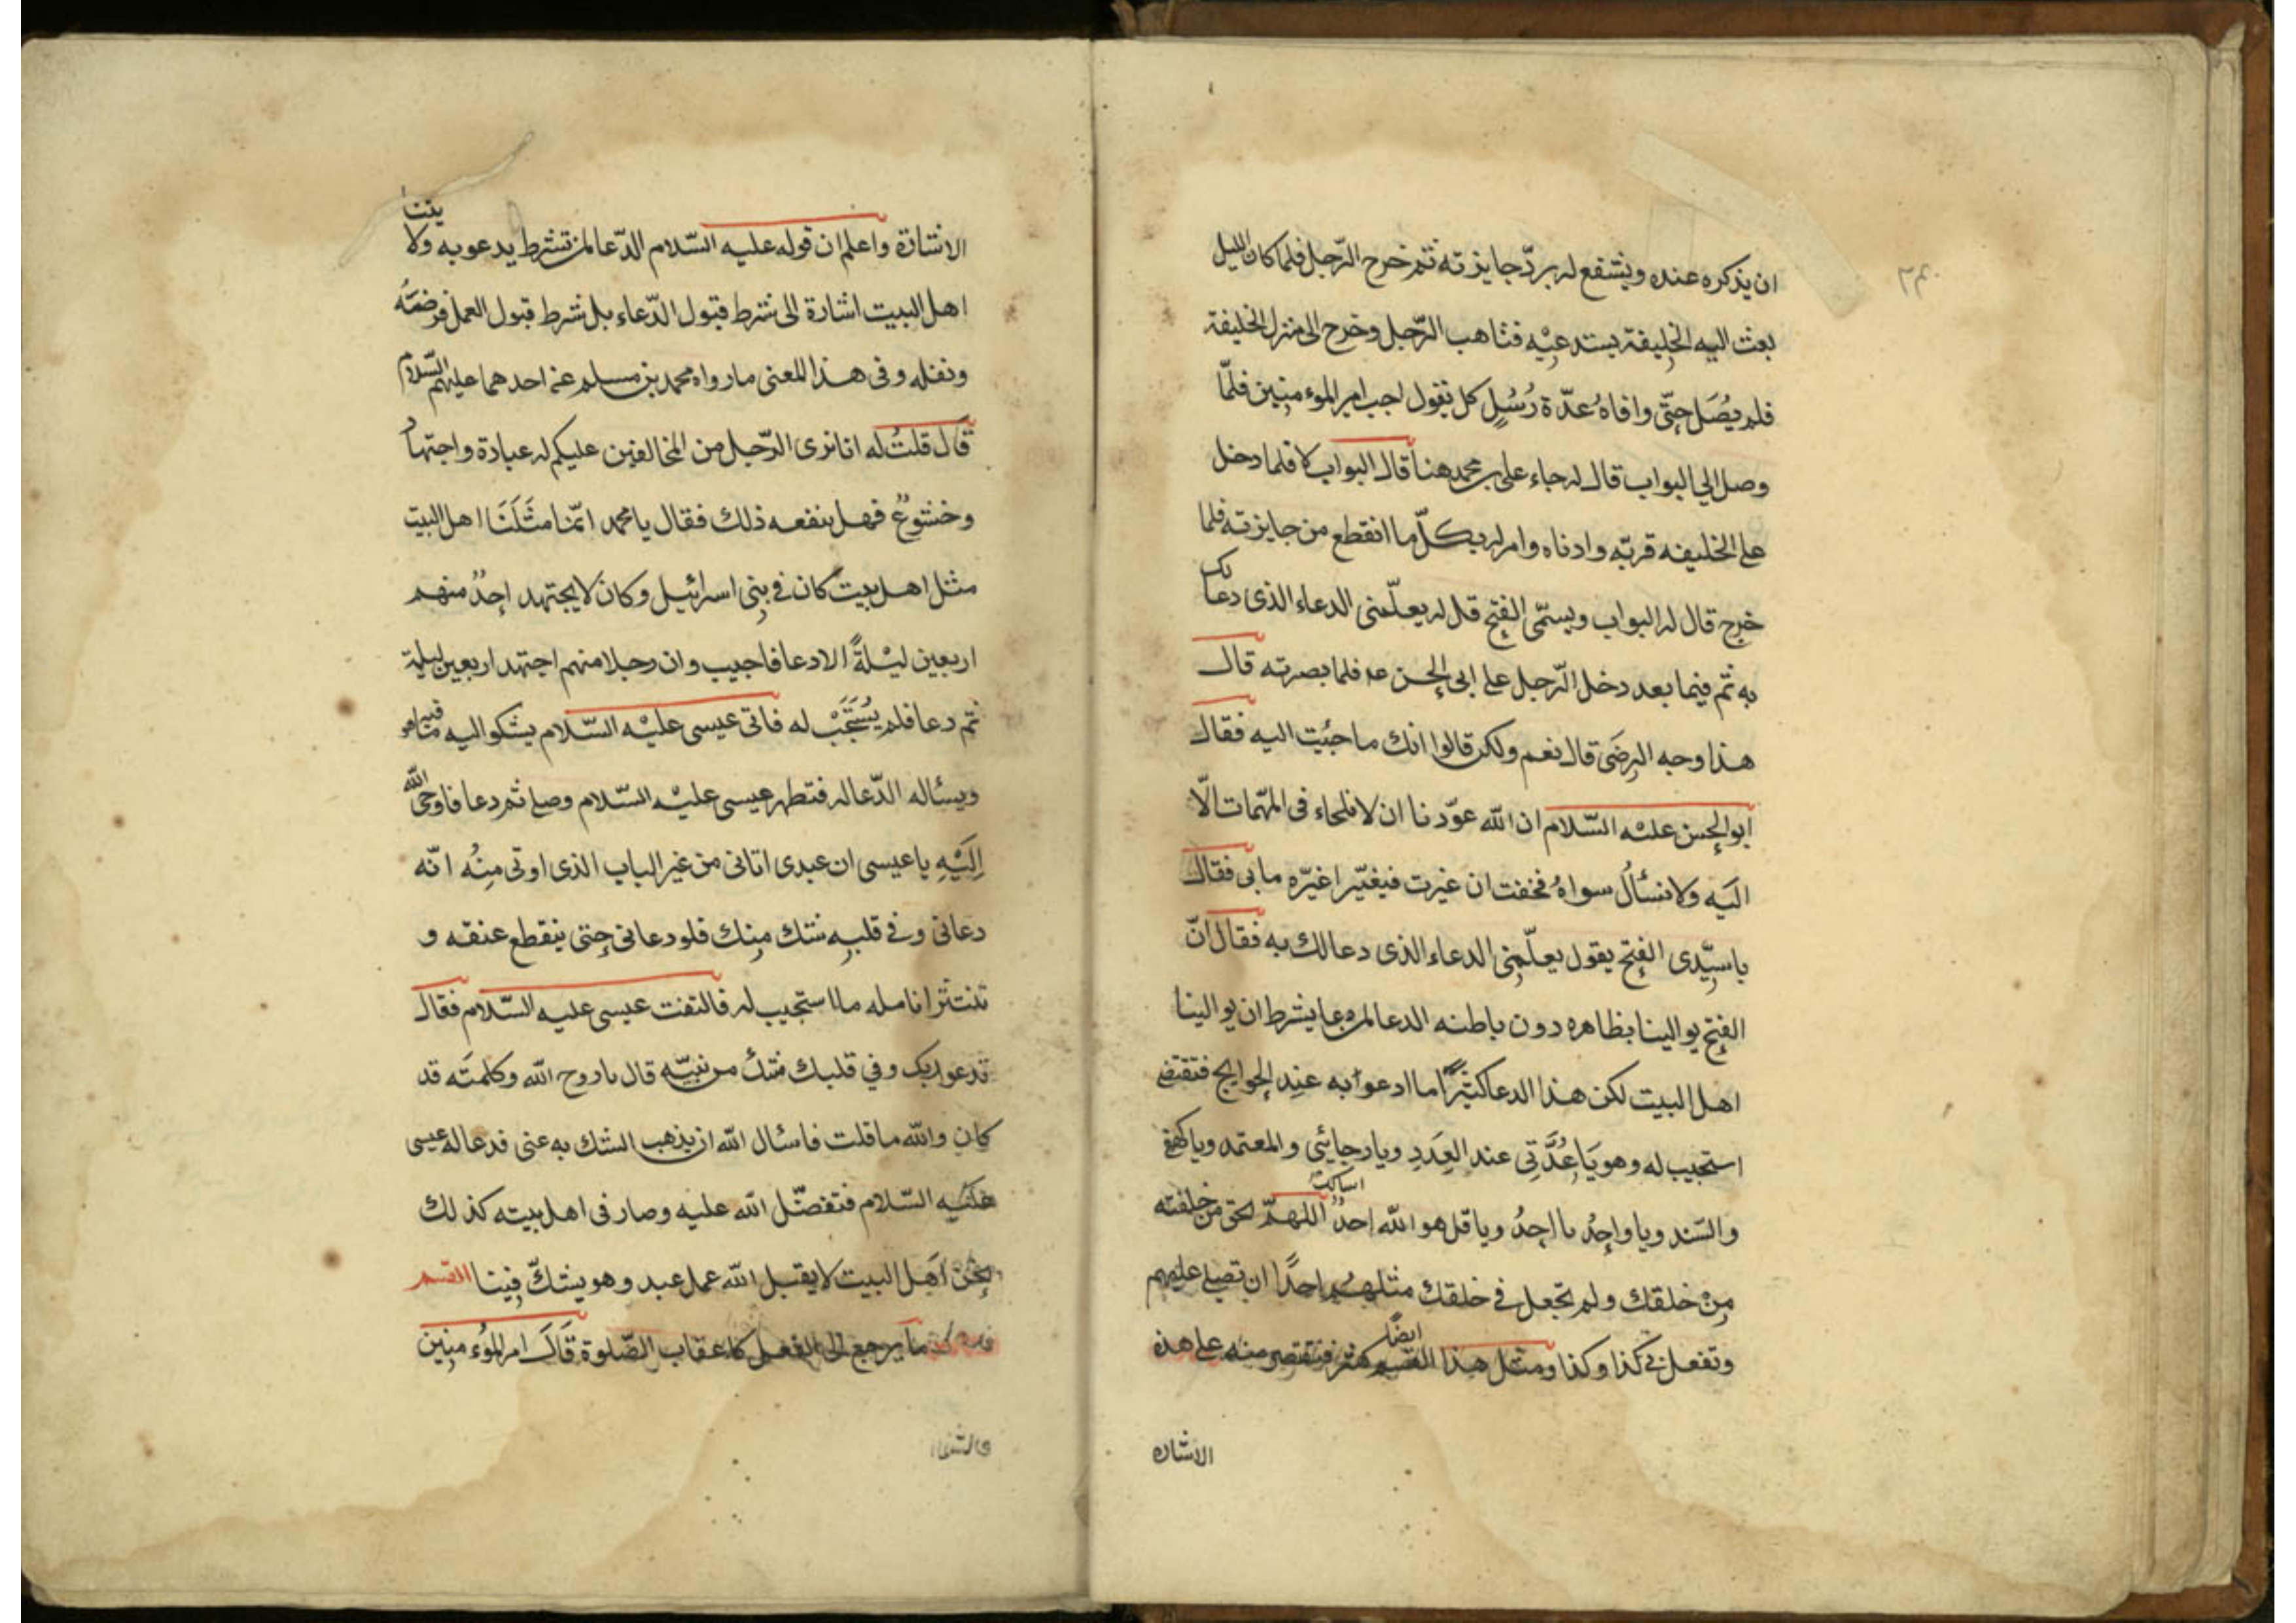 ان يذكره عنده ويشفع له بردّ جايزته ثم خرج الرّجل فلما كان الليل
بعث اليه الخليفة يستدعيْه فتاهب الرّجل وخرج الى منزل الخليفة
فلم يصُل حتّى وافاهُ عدّة رُسُلٍ كل يقول اجب امير الموءمنين فلمّا
وصل الي البواب قال له جاء على بن محمد هنا قال البواب لا فلما دخل
على الخليفه قربّه وادناه وامر له بكلّ ما انقطع من جايزته فلما
خرج قال له البواب ويسمّى الفتح قل له يعلّمنى الدعاء الذى دعا لك
به ثم فيما بعد دخل الرّجل على ابى الحسن عه فلما بصر ته قال
هذا وجه الرِضَى قال نعم ولكن قالوا انك ما جئيت اليه فقال
ابو الحسن عليْه السّلام ان الله عوّدنا ان لا نلجاء فى المهّمات الّا
اليَه ولا نسألُ سواهُ فخفت ان غيرت فيغيّر اغيّره ما بى فقال
يا سيّدى الفتح يقول يعلّمنى الدعاء الذى دعا لك به فقال انّ
الفتح يوالينا بظاهره دون باطنه الدعا لمن دعا بشرط ان يوالينا
اهل البيت لكن هذا الدعا كثيرًا ما ادعوا به عند الحوايج فتقضى
استجيب له وهو يَا عُدَّتِى عند العِدَدِ ويا رجائيى والمعتمد ويا كهفى
والسّند ويا واحِدُ يا احِدُ ويا قل هو الله احدٌ اسالك اللهمّ بحق من خلقته
مِنْ خلقك ولم تجعل فى خلقك مثلهم احدًا ان تصلى عليهم
وتفعل بى كذا وكذا ومثل هذا القسم ايضًا كثير فنقتصر منه على هذه
الاشاره
الاشارة واعلم ان قوله عليه السّلام الدّعا لمن بشرط يدعو به ولا يتنا
اهل البيت اشارة الى شرط قبول الدّعاء بل شرط قبول العمل فرضهُ
ونفله وفى هذا المعنى ما رواه محمد بن مسلم عن احدهما عليهم السّلام
قال قلتُ له انا نرى الرّجل من المخالفين عليكم له عبادة واجتهاد
وخشوعٌ فهل ينفعه ذلك فقال يا محمد انّمنا مثَلَنَا اهل البيت
مثل اهل بيت كان فى بنى اسرائيل وكان لا يجتهد احدٌ منهم
اربعين ليْلةً الا دعا فاجيب وان رجلا منهم اجتهد اربعين ليلة
ثم دعا فلم يُسْتَجَبْ له فاتى عيسى عليْه السّلام يشكو اليه ما هو فيه
ويسئاله الدّعا له فتطهر عيسى عليْه السّلام وصلى ثم دعا فاوحى الله
اِلَيْهِ يا عيسى ان عبدى اتانى من غير الباب الذى اوتى مِنْه انّه
دعانى وفى قلبه شك مِنك فلو دعانى حتى ينقطع عنقه و
تنتثر انامله ما استجيب له فالتفت عيسى عليه السّلام فقال
تدعو ربك وفي قلبك شكٌ من نبيّه قال يا روح الله وكلمته قد
كان والله ما قلت فاسئال الله ان يذهب الشك به عنى فدعا له عيسى
عليْه السّلام فتفضّل الله عليه وصار فى اهل بيته كذلك
نحن اَهل البيت لا يقبل الله عمل عبد وهو يشكّ فينا القسم
ما يرجع الى الفعل كاعقاب الصّلوة قَالَ امير الموُءمنين